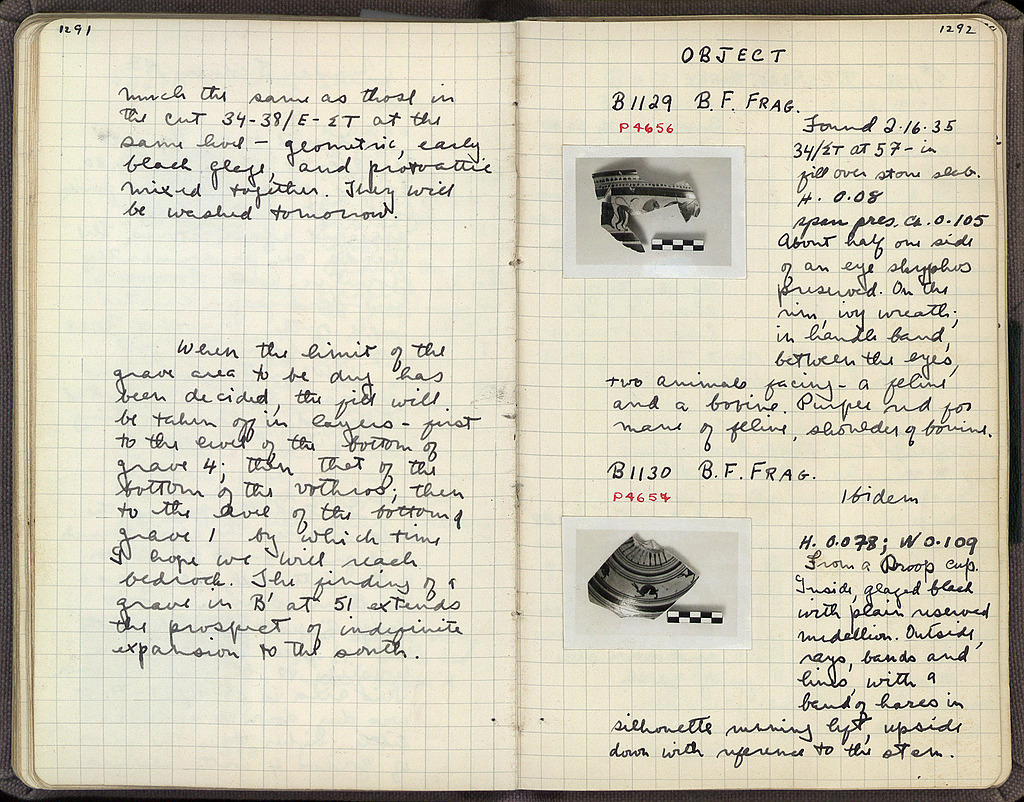 1291
much the same as those in
the cut 34-38/E-ΣΤ at the
same level - geometric, early
black glaze, and protoattic
mixed together. They will
be washed tomorrow.
When the limit of the
grave area to be dug has
been decided, the fill will
be taken off in layers - first
to the level of the bottom of
grave 4; then that of the
bottom of the vothros; then
to the level of the bottom of
grave 1 by which time
I hope we will reach
bedrock. The finding of a
grave in B' at 51 extends
the prospect of indefinite
expansion to the south.
1292
OBJECT
B1129 B.F. FRAG.
P4656
Found 2-16-35
34/ΣΤ at 57- in
fill over stone slab.
H. 0.08
span pres. ca. 0.105
About half one side
of an eye skyphos
preserved. On the
rim, ivy wreath;
in handle band,
between the eyes,
two animals facing - a feline
and a bovine. Purple red for
mane of feline, shoulder of bovine.
B1130 B.F. FRAG.
P4657
Ibidem
H. 0.078; W 0.109
From a Droop cup.
Inside, glazed black
with plain reserved
medallion. Outside,
rays, bands and
lines, with a
band of hares in
silhouette running left, upside
down with reference to the stem.